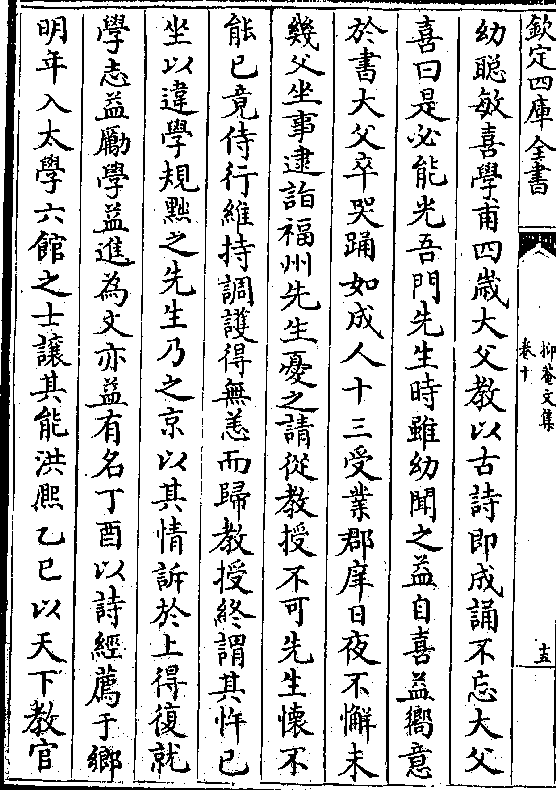 欽定四庫全書
抑菴文集
卷十
十五
幼聡敏喜學甫四嵗大父教以古詩即成誦不忘大父
喜曰是必能光吾門先生時雖幼聞之益自喜益嚮意
於書大父卒哭踊如成人十三受業郡庠日夜不懈未
幾父坐事逮詣福州先生憂之請從教授不可先生懐不
能已竟侍行維持調護得無恙而歸教授終謂其忤已
坐以違學規黜之先生乃之京以其情訴於上得復就
學志益勵學益進為文亦益有名丁酉以詩經薦于鄉
明年入太學六館之士讓其能洪熈乙巳以天下教官